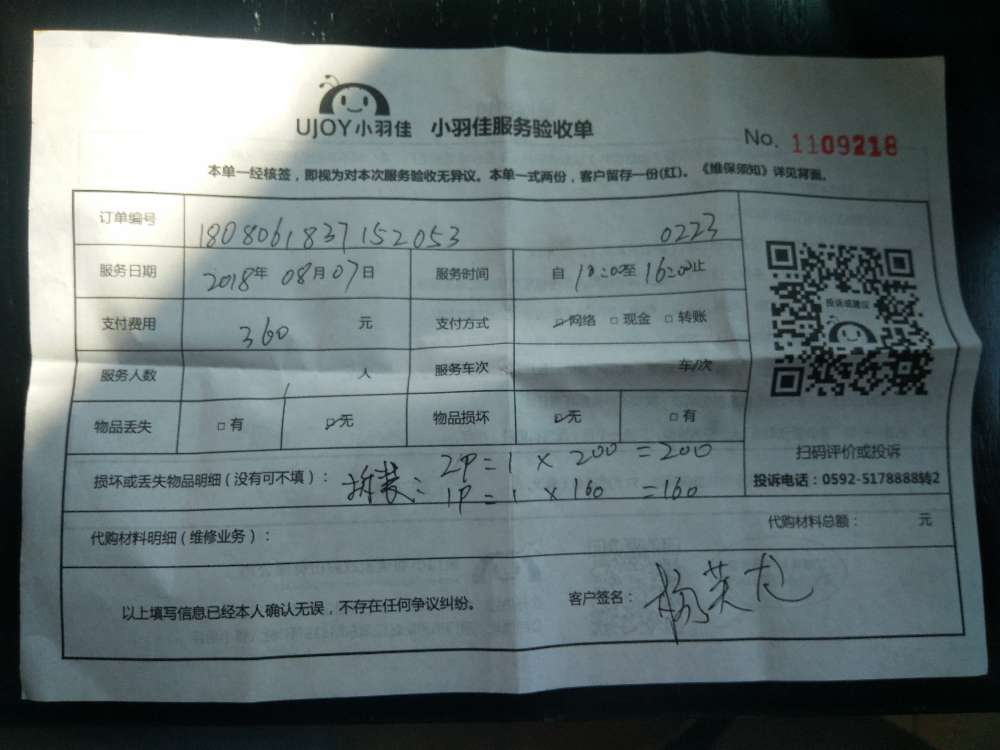 UJOY小羽佳 小羽佳服务验收单
No. 1109218
本单一经核签，即视为对本次服务验收无异议。本单一式两份，客户留存一份(红)。《维保须知》详见背面。
订单编号 180806183715 2053 0223
服务日期 2018年08月07日 服务时间 自10:00至16:00止
支付费用 360 元 支付方式 ☑网络 □现金 □转账
投诉或建议
服务人数 1 人 服务车次 车/次
物品丢失 □有 ☑无 物品损坏 ☑无 □有
扫码评价或投诉
投诉电话：0592-5178888转2
损坏或丢失物品明细（没有可不填）： 拆装： 2P=1×200=200
1P=1×160=160
代购材料总额： 元
代购材料明细（维修业务）：
以上填写信息已经本人确认无误，不存在任何争议纠纷。 客户签名： 杨英龙